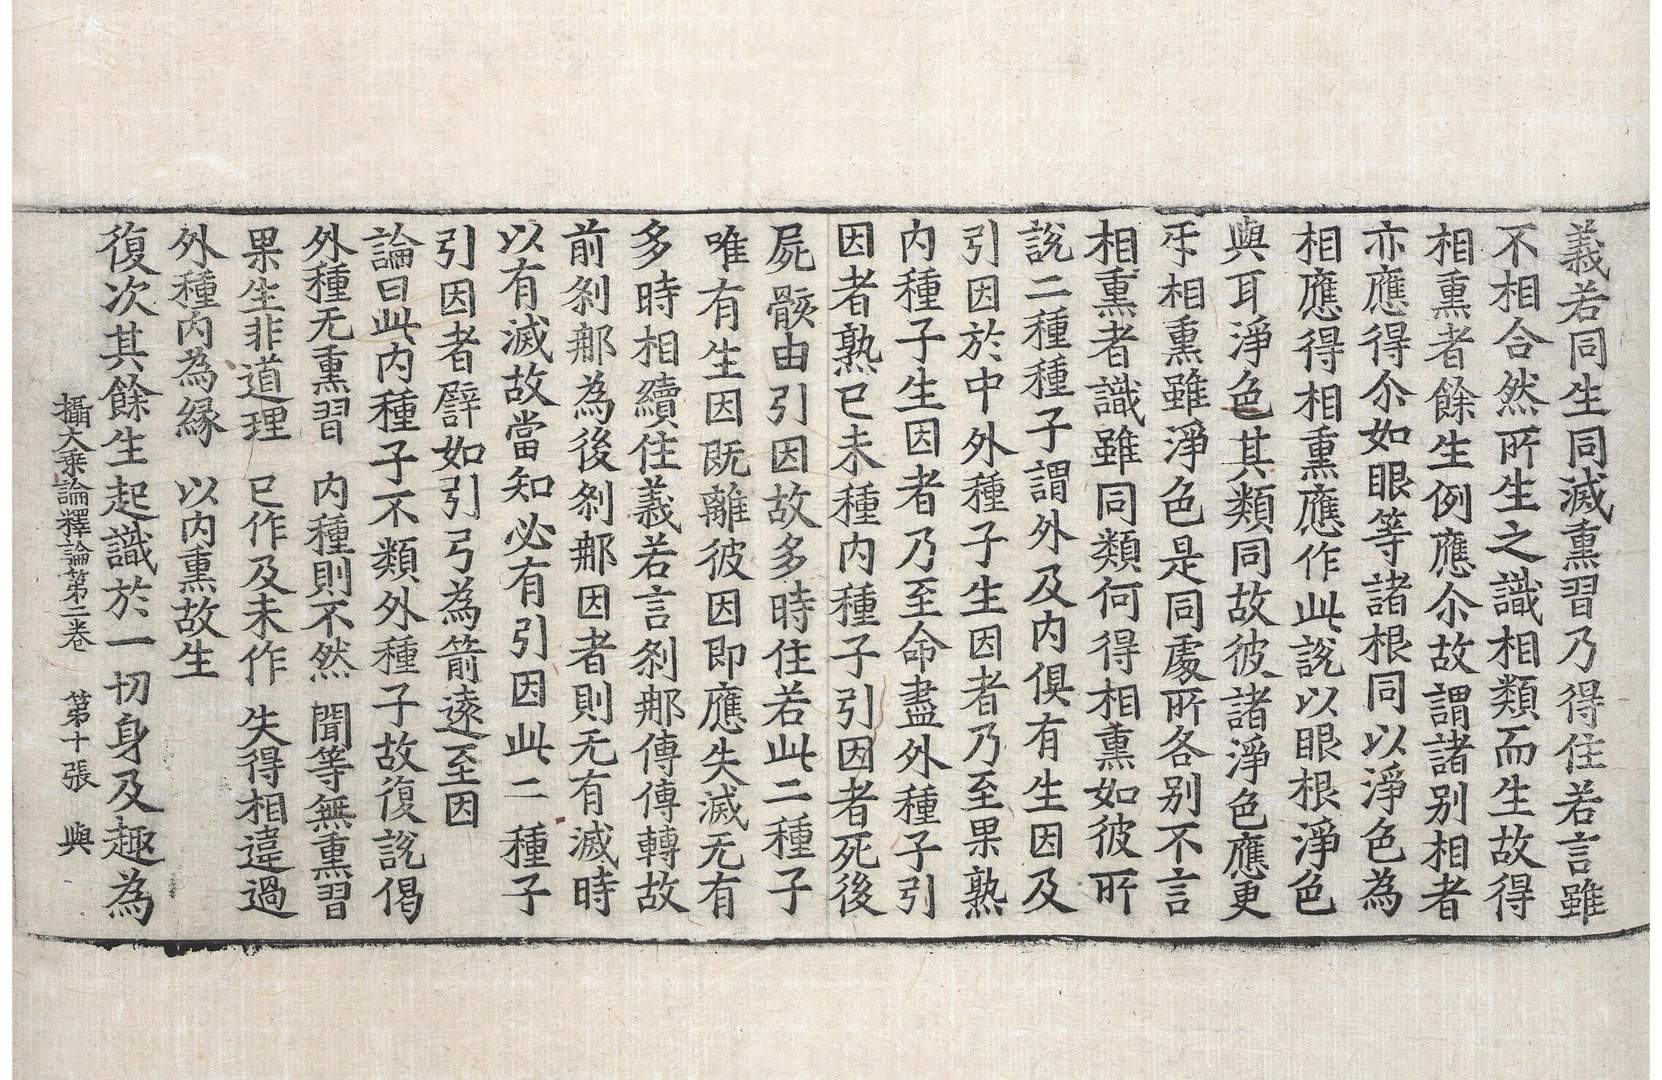 義若同生同滅熏習乃得住若言雖
不相合然所生之識相類而生故得
相熏者餘生例應尒故謂諸別相者
亦應得尒如眼等諸根同以淨色為
相應得相熏應作此說以眼根淨色
與耳淨色其類同故彼諸淨色應更
互相熏雖淨色是同處所各別不言
相熏者識雖同類何得相熏如彼所
說二種種子謂外及內俱有生因及
引因於中外種子生因者乃至果熟
內種子生因者乃至命盡外種子引
因者熟已未種內種子引因者死後
屍骸由引因故多時住若此二種子
唯有生因既離彼因即應失滅无有
多時相續住義若言剎那傳傳轉故
前剎那為後剎那因者則无有滅時
以有滅故當知必有引因此二種子
引因者譬如引弓為箭遠至因
論曰此內種子不類外種子故復說偈
外種无熏習 內種則不然 聞等無熏習
果生非道理 已作及未作 失得相違過
外種內為緣 以內熏故生
復次其餘生起識於一切身及趣為
攝大乘論釋論第二卷 第十張 與